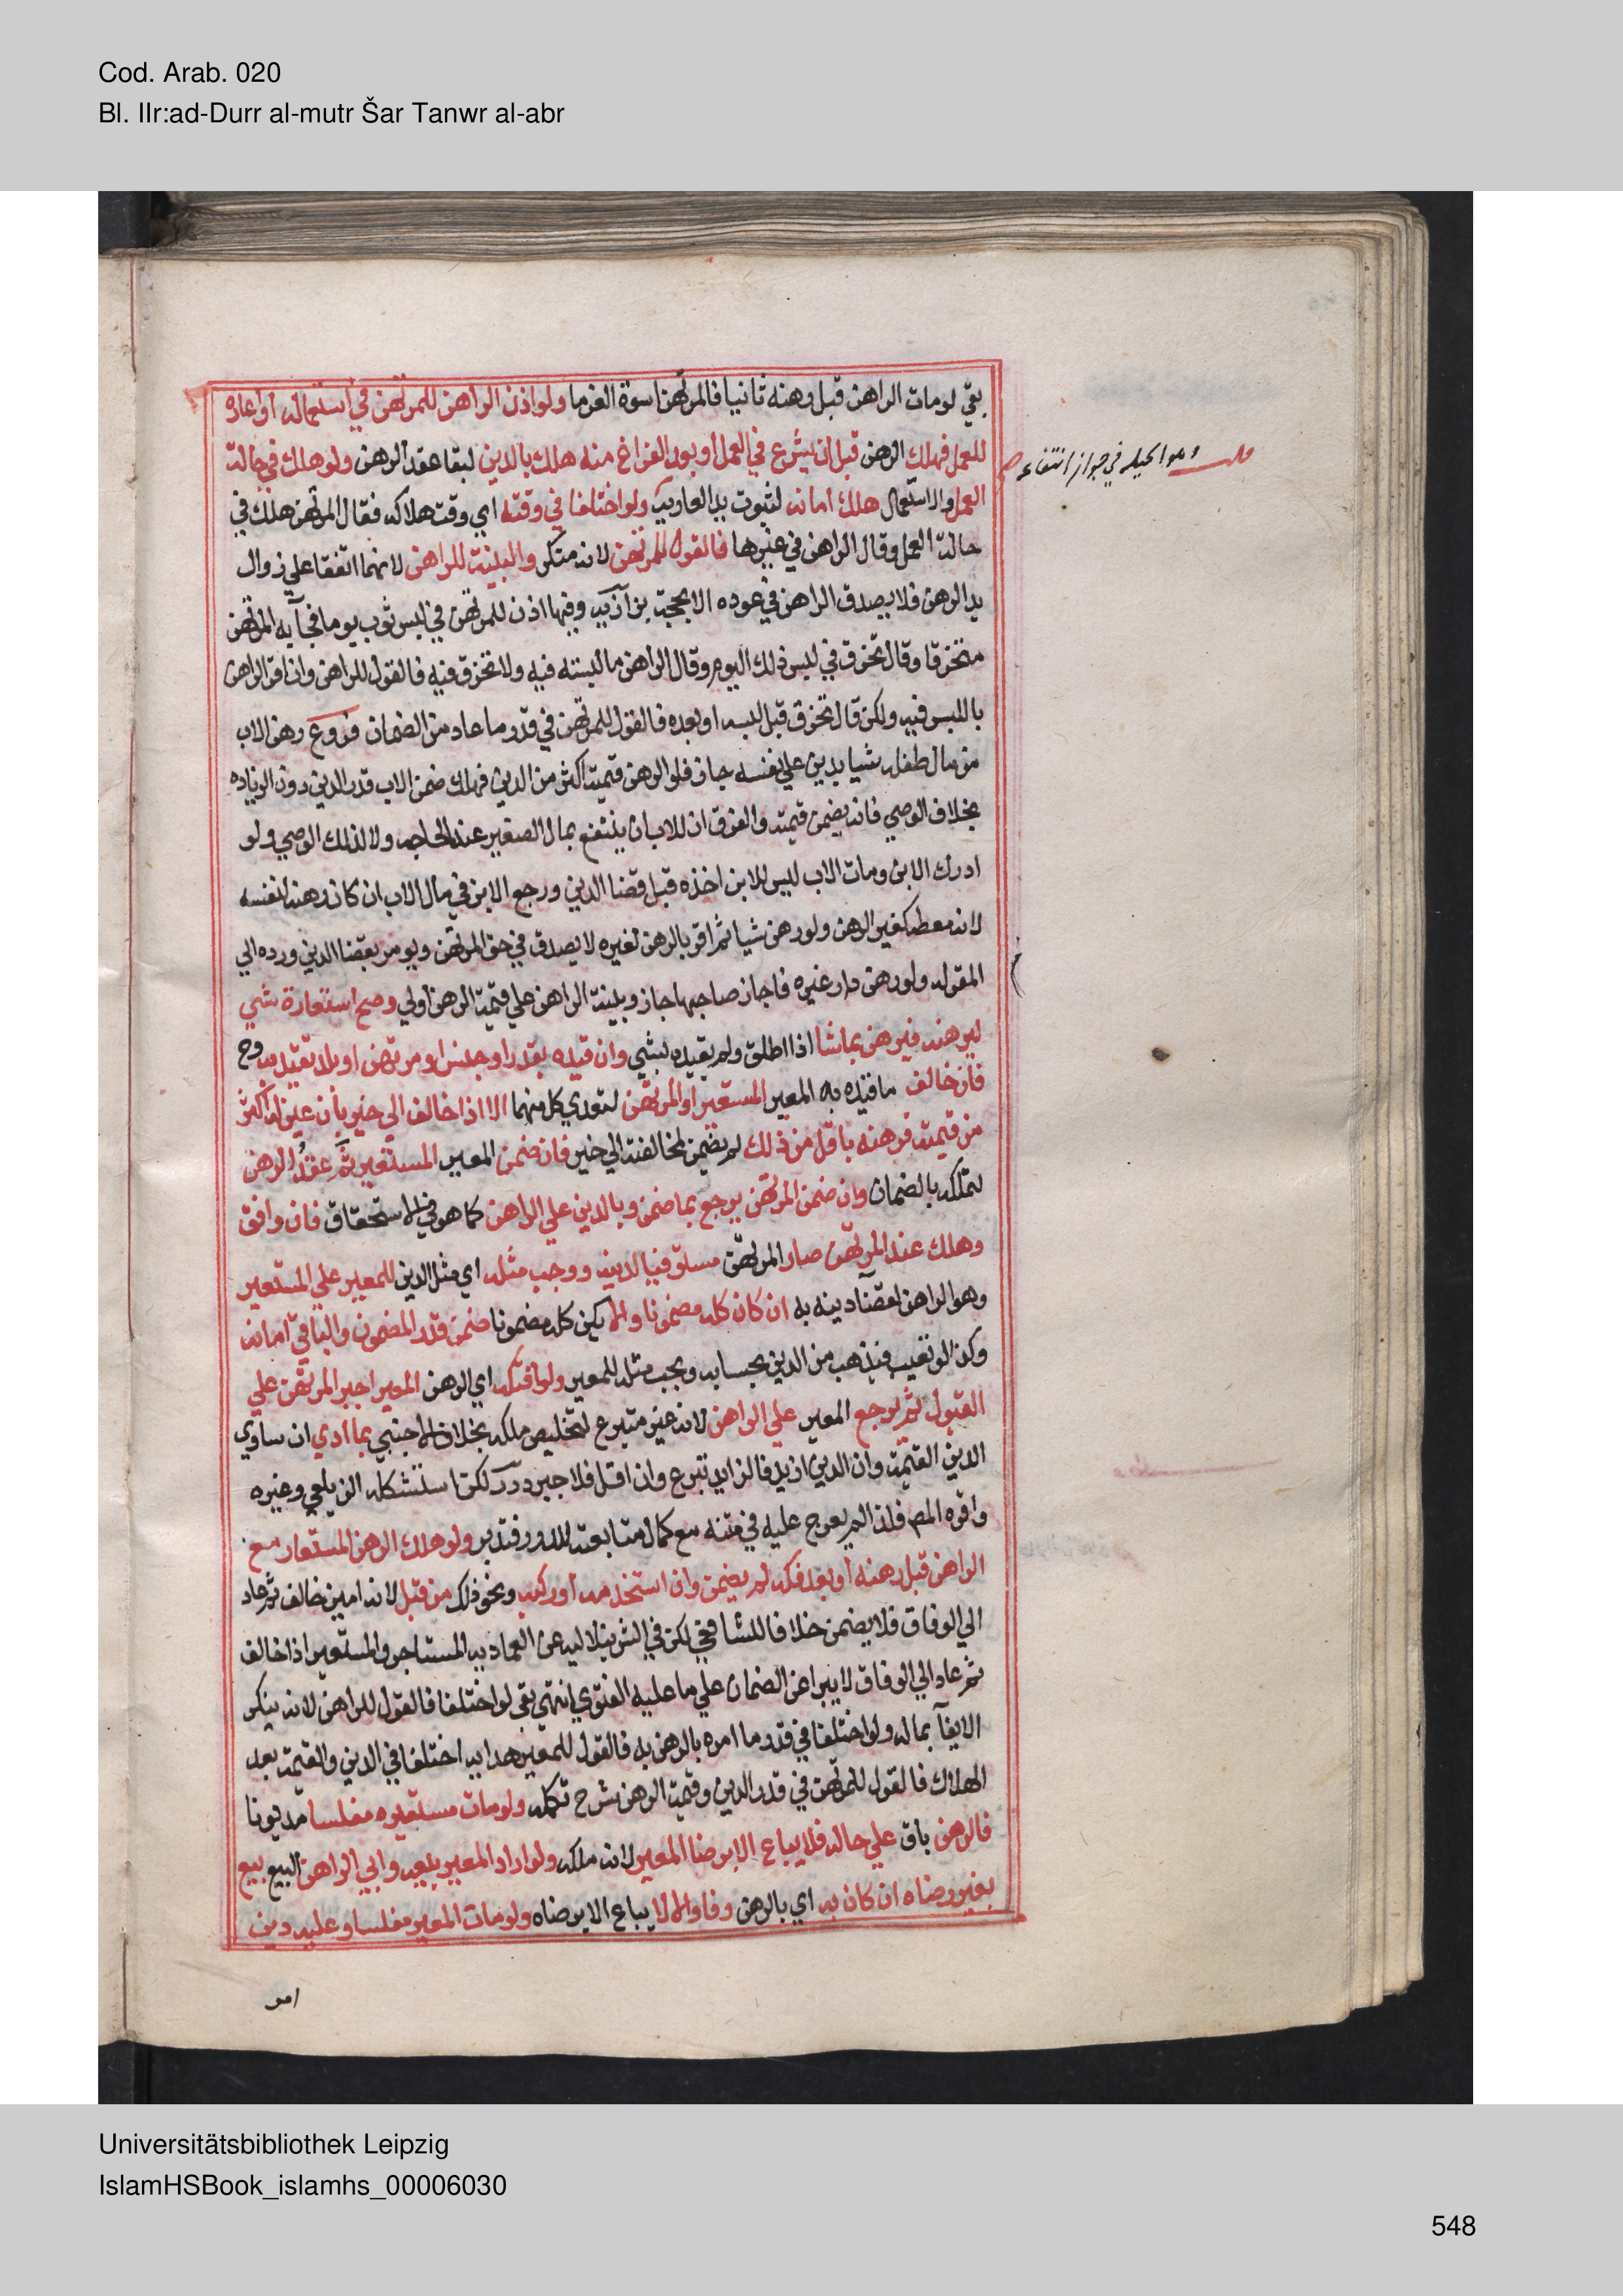 Cod. Arab. 020
Bl. IIr:ad-Durr al-mutr Šar Tanwr al-abr
بقي لو مات الراهن قبل رهنه ثانيا فالمرتهن اسوة الغرما ولو اذن الراهن للمرتهن في استعماله او اعاره
للعمل فهلك الرهن قبل ان يشرع في العمل او بعد الفراغ منه هلك بالدين لبقا عقد الرهن ولو هلك في حالة
وهو الحيله في جواز انتفاع
العمل والاستعمال هلك امانه لثبوت يد العارية ولو اختلفا في وقته اي وقت هلاكه فقال المرتهن هلك في
حالة العمل وقال الراهن في غيرها فالقول للمرتهن لانه منكر والبينة للراهن لانهما اتفقا علي زوال
يد الرهن فلا يصدق الراهن في عوده الا بحجة بزازيه وفيها اذن للمرتهن في لبس ثوب يوما فجآ به المرتهن
متخرقا وقال تخرق في لبس ذلك اليوم وقال الراهن ما لبسته فيه ولا تخرق فيه فالقول للراهن وان اقر الراهن
باللبس فيه ولكن قال تخرق قبل لبسه او بعده فالقول للمرتهن في قدر ما عاد من الضمان فروع رهن الاب
من مال طفله شيا بدين علي نفسه جاز فلو الرهن قيمته اكثر من الدين فهلك ضمن الاب قدر الدين دون الزياده
بخلاف الوصي فانه يضمن قيمته والفرق ان للاب ان ينتفع بمال الصغير عند الحاجه ولا لذلك الوصي ولو
ادرك الابن ومات الاب ليس للابن اخذه قبل قضا الدين ورجع الابن في مال الاب ان كان رهنه لنفسه
لانه معطر كغير الرهن ولو رهن شيا ثم اقر بالرهن لغيره لا يصدق في حق المرتهن ويومر بقضا الدين ورده الي
المقر له ولو رهن دار غيره فاجاز صاحبها جاز وبينة الراهن علي قيمة الرهن اولي وصح استعارة شي
ليرهنه فيرهن بما شا اذا اطلق ولم يقيده بشي وان قيده بقدر او جنس او مرتهن او بلد تقيد به وح
فان خالف ما قيده به المعير المستعير او المرتهن لتعدي كل منهما الا اذا خالف الي خير بان عين له اكثر
من قيمته فرهنه باقل من ذلك لم يضمن لمخالفته الي خير فان ضمن المعير المستعير تم عقد الرهن
لتملكه بالضمان وان ضمن المرتهن يرجع بما ضمن وبالدين علي الراهن كما هو في الاستحقاق فان وافق
وهلك عند المرتهن صار المرتهن مستوفيا لدينه ووجب مثله اي مثل الدين للمعير علي المستعير
وهو الراهن لقضآ دينه به ان كان كله مضمونا والا يكن كله مضمونا ضمن قدر المضمون والباقي امانه
وكذا لو تعيب فيذهب من الدين بحسابه ويجب مثله للمعير ولو افتكه اي الرهن المعير اجبر المرتهن علي
القبول ثم يرجع المعير علي الراهن لانه غير متبرع لتخليص ملكه بخلاف الاجنبي بما ادي ان ساوي
الدين القيمة وان الدين ازيد فالزايد تبرع وان اقل فلا جبر درر لكن استشكله الزيلعي وغيره
واقره المص فلذا لم يعرج عليه في متنه مع كمال متابعته للدرر فتدبر ولو هلك الرهن المستعار مع
الراهن قبل رهنه او بعد فكه لم يضمن وان استخدمه او ركبه ونحو ذلك من قبل لانه امين خالف ثم عاد
الي الوفاق فلا يضمن خلافا للشافعي لكن في الشرنبلاليه عن العماديه المستاجر والمستعير اذا خالف
ثم عاد الي الوفاق لا يبرا عن الضمان علي ما عليه الفتوي انتهي بقي لو اختلفا فالقول للراهن لانه ينكر
الايفآ بماله ولو اختلفا في قدر ما امره بالرهن به فالقول للمعير هدايه اختلفا في الدين والقيمة بعد
الهلاك فالقول للمرتهن في قدر الدين وقيمة الرهن شرح تكمله ولو مات مستعيره مفلسا مديونا
فالرهن باق علي حاله فلا يباع الا برضا المعير لانه ملكه ولو اراد المعير بيعه وابي الراهن البيع بيع
بغير رضاه ان كان به اي بالرهن وفا والا لا يباع الا برضاه ولو مات المعير مفلسا وعليه دين
امر
Universitätsbibliothek Leipzig
IslamHSBook_islamhs_00006030
548